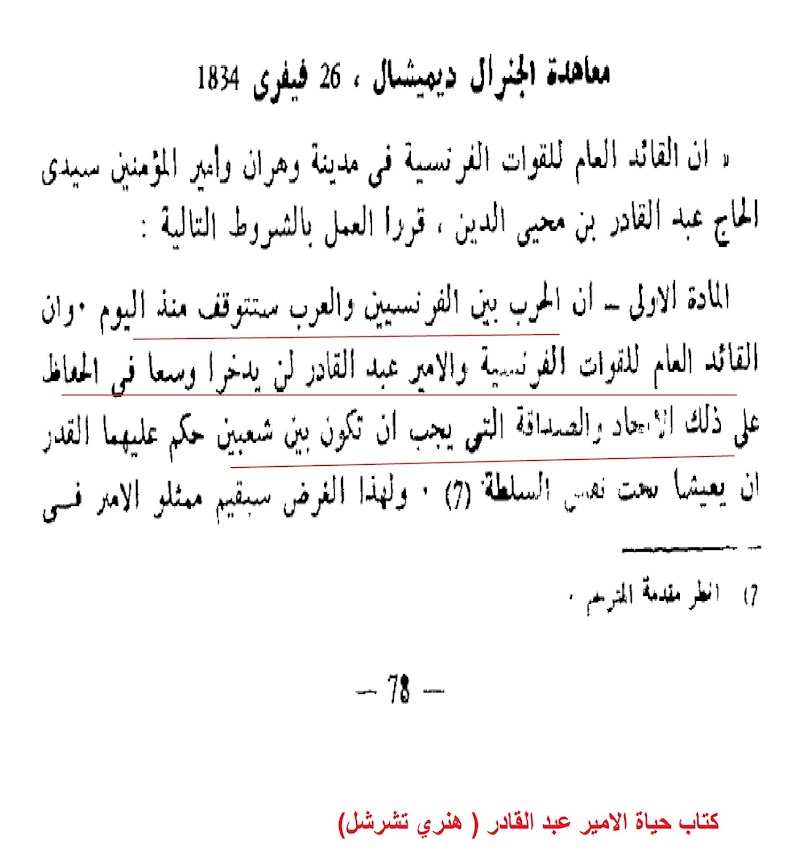 معاهدة الجنرال ديميشال ، 26 فيفرى 1834
« ان القائد العام للقوات الفرنسية فى مدينة وهران وأمير المؤمنين سيدى
الحاج عبد القادر بن محيى الدين ، قررا العمل بالشروط التالية :
المادة الاولى ــ ان الحرب بين الفرنسيين والعرب ستتوقف منذ اليوم ٠ وان
القائد العام للقوات الفرنسية والامير عبد القادر لن يدخرا وسعا فى الحفاظ
على ذلك الاتحاد والصداقة التى يجب ان تكون بين شعبين حكم عليهما القدر
ان يعيشا تحت نفس السلطة (7) ٠ ولهذا الغرض سيقيم ممثلو الامير فــى
7) انظر مقدمة المترجم ٠
— 78 —
كتاب حياة الامير عبد القادر ( هنري تشرشل)